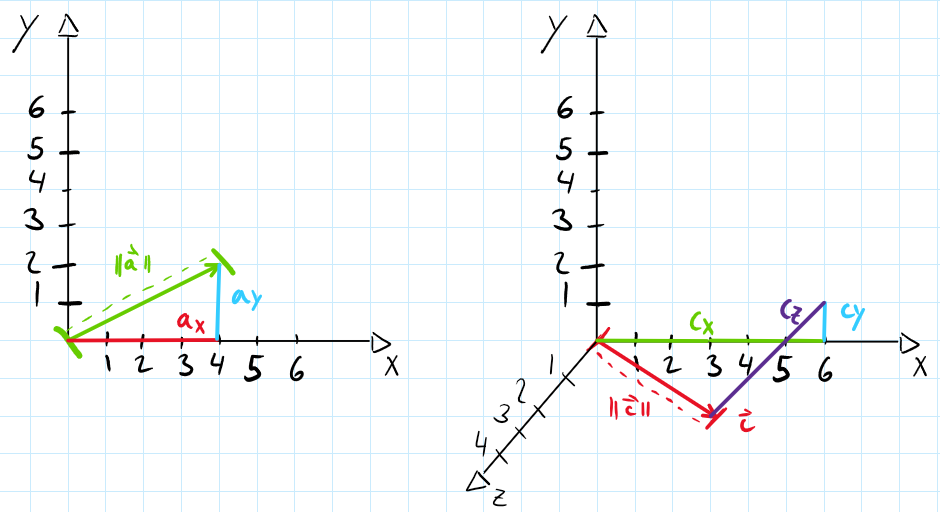 y
6
5
4
3
2
1
||a⃗||
ax
ay
1 2 3 4 5 6
x
y
6
5
4
3
2
1
cx
cz
cy
1 2 3 4 5 6
x
1
2
3
4
z
||c⃗||
c⃗